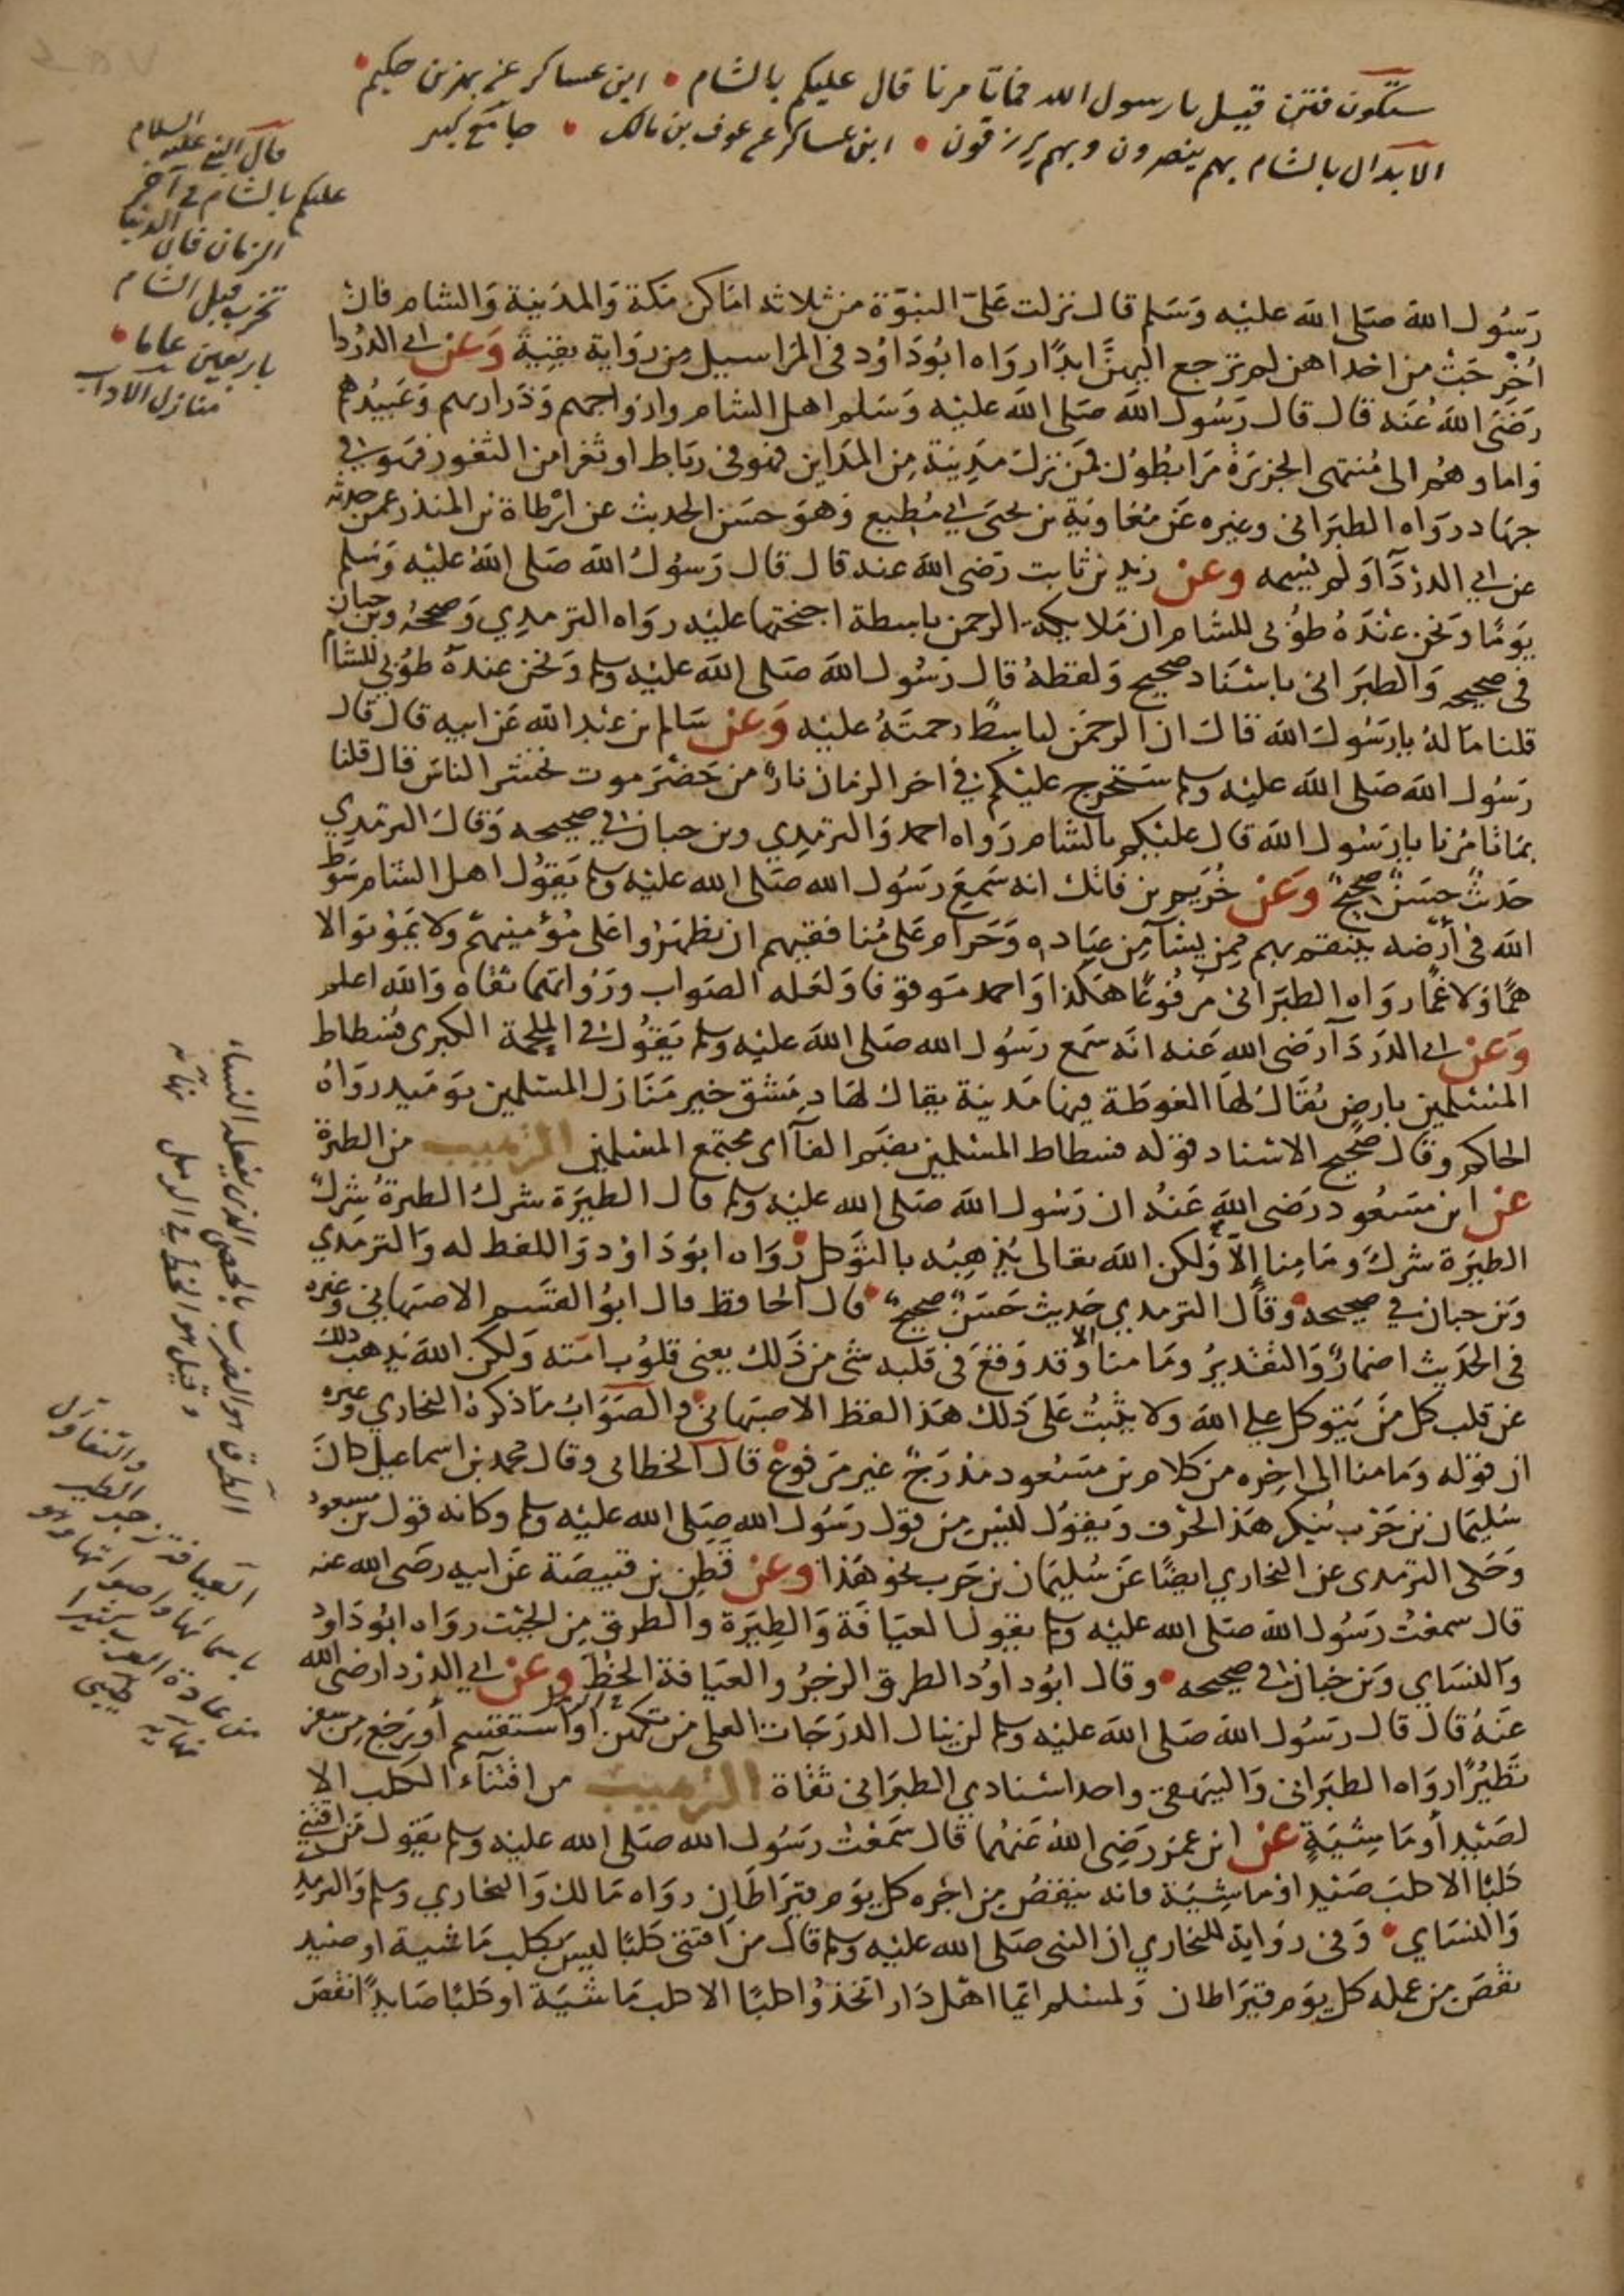 ستكون فتن قيل يا رسول الله فما تأمرنا قال عليكم بالشام • ابن عساكر عن بهز بن حكيم •
الابدال بالشام بهم ينصرون وبهم يرزقون • ابن عساكر عن عوف بن مالك • جامع كبير
قال النبي عليه السلام
عليكم بالشام في آخر
الزمان فان الدنيا
تخرب قبل الشام
باربعين عاما •
منازل الاداب
رسول الله صلى الله عليه وسلم قال نزلت على النبوة من ثلاثة اماكن مكة والمدينة والشام فان
اخرجت من احداهن لم ترجع اليهن ابدا رواه ابو داود في المراسيل من رواية بقية وعن ابي الدردا
رضي الله عنه قال قال رسول الله صلى الله عليه وسلم اهل الشام وازواجهم وذراريهم وعبيدهم
واماوهم الى منتهى الجزيرة مرابطون فمن نزل مدينة من المداين فهو في رباط او ثغرا من الثغور فهو في
جهاد رواه الطبراني وغيره عن معاوية بن يحيى ابي مطيع وهو حسن الحديث عن ارطاة بن المنذر عمن حدثه
عن ابي الدردآ ولم يسمه وعن زيد بن ثابت رضي الله عنه قال قال رسول الله صلى الله عليه وسلم
يوما ونحن عنده طوبى للشام ان ملايكة الرحمن باسطة اجنحتها عليه رواه الترمدي وصححه وبن حبان
في صحيحه والطبراني باسناد صحيح ولفظه قال رسول الله صلى الله عليه وسلم ونحن عنده طوبى للشام
قلنا ما له يا رسول الله قال ان الرحمن لباسط رحمته عليه وعن سالم بن عبد الله عن ابيه قال قال
رسول الله صلى الله عليه وسلم ستخرج عليكم في اخر الزمان نار من حضرموت تحشر الناس قال قلنا
بما تامرنا يا رسول الله قال عليكم بالشام رواه احمد والترمدي وبن حبان في صحيحه وقال الترمدي
حديث حسن صحيح وعن خريم بن فاتك انه سمع رسول الله صلى الله عليه وسلم يقول اهل الشام سوط
الله في أرضه ينتقم بهم ممن يشآ من عباده وحرام على منافقيهم ان يظهروا على مؤمنيهم ولا يموتوا الا
هما ولا غما رواه الطبراني مرفوعا هكذا واحمد موقوفا ولعله الصواب ورواتهما ثقاة والله اعلم
وعن ابي الدردآ رضي الله عنه انه سمع رسول الله صلى الله عليه وسلم يقول في الملحمة الكبرى فسطاط
المسلمين بارض يقال لها الغوطة فيها مدينة يقال لها دمشق خير منازل المسلمين يوميد رواه
الحاكم وقال صحيح الاسناد قوله فسطاط المسلمين بضم الفآ اى مجتمع المسلمين الترهيب من الطيرة
عن ابن مسعود رضي الله عنه ان رسول الله صلى الله عليه وسلم قال الطيرة شرك الطيرة شرك
الطيرة شرك وما منا إلا ولكن الله تعالى يذهبه بالتوكل رواه ابو داود واللفظ له والترمدي
وبن حبان في صحيحه وقال الترمدي حديث حسن صحيح • قال الحافظ قال ابو القسم الاصبهاني وغيره
في الحديث اضمار والتقدير وما منا الا وقد وقع في قلبه شى من ذلك يعني قلوب امته ولكن الله يذهب ذلك
عن قلب كل من يتوكل على الله ولا يثبت على ذلك هذا لفظ الاصبهاني والصواب ما ذكره البخاري وغيره
ان قوله وما منا الى اخره من كلام بن مسعود مدرج غير مرفوع قال الخطابى وقال محمد بن اسماعيل كان
سليمان بن حرب ينكر هذا الحرف ويقول ليس من قول رسول الله صلى الله عليه وسلم وكانه قول بن مسعود
وحكى الترمدى عن البخاري ايضا عن سليمان بن حرب نحو هذا وعن قطن بن قبيصة عن ابيه رضي الله عنه
قال سمعت رسول الله صلى الله عليه وسلم يقول العيافة والطيرة والطرق من الجبت رواه ابو داود
والنساي وبن حبان في صحيحه • وقال ابو داود الطرق الزجر والعيافة الخط وعن ابي الدردا رضي الله
عنه قال قال رسول الله صلى الله عليه وسلم لن ينال الدرجات العلى من تكهن او استقسم أو رجع من سفر
تطيرا رواه الطبراني والبيهقي واحد اسنادي الطبراني ثقاة الترهيب من اقتنآء الكلب الا
لصيد أو ماشية عن ابن عمر رضي الله عنهما قال سمعت رسول الله صلى الله عليه وسلم يقول من اقتنى
كلبا الا كلب صيد او ماشية فانه ينقص من اجره كل يوم قيراطان رواه مالك والبخاري ومسلم والترمدي
والنساي • وفي رواية للبخاري ان النبي صلى الله عليه وسلم قال من اقتنى كلبا ليس بكلب ماشية او صيد
نقص من عمله كل يوم قيراطان ولمسلم ايما اهل دار اتخذوا كلبا الا كلب ماشية او كلبا صايدا نقص
الطرق هو الضرب بالحصى الذى يفعله النساء
وقيل هو الخط في الرمل نهايه
العيافة زجر الطير والتفاؤل
باسمائها واصواتها وهو
من عادة العرب كثيرا
نهايه طيبى